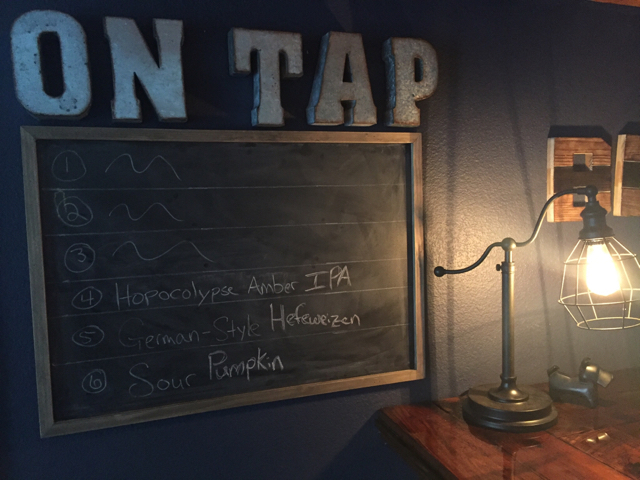 ON TAP
1
2
3
4 Hopocolypse Amber IPA
5 German-Style Hefeweizen
6 Sour Pumpkin